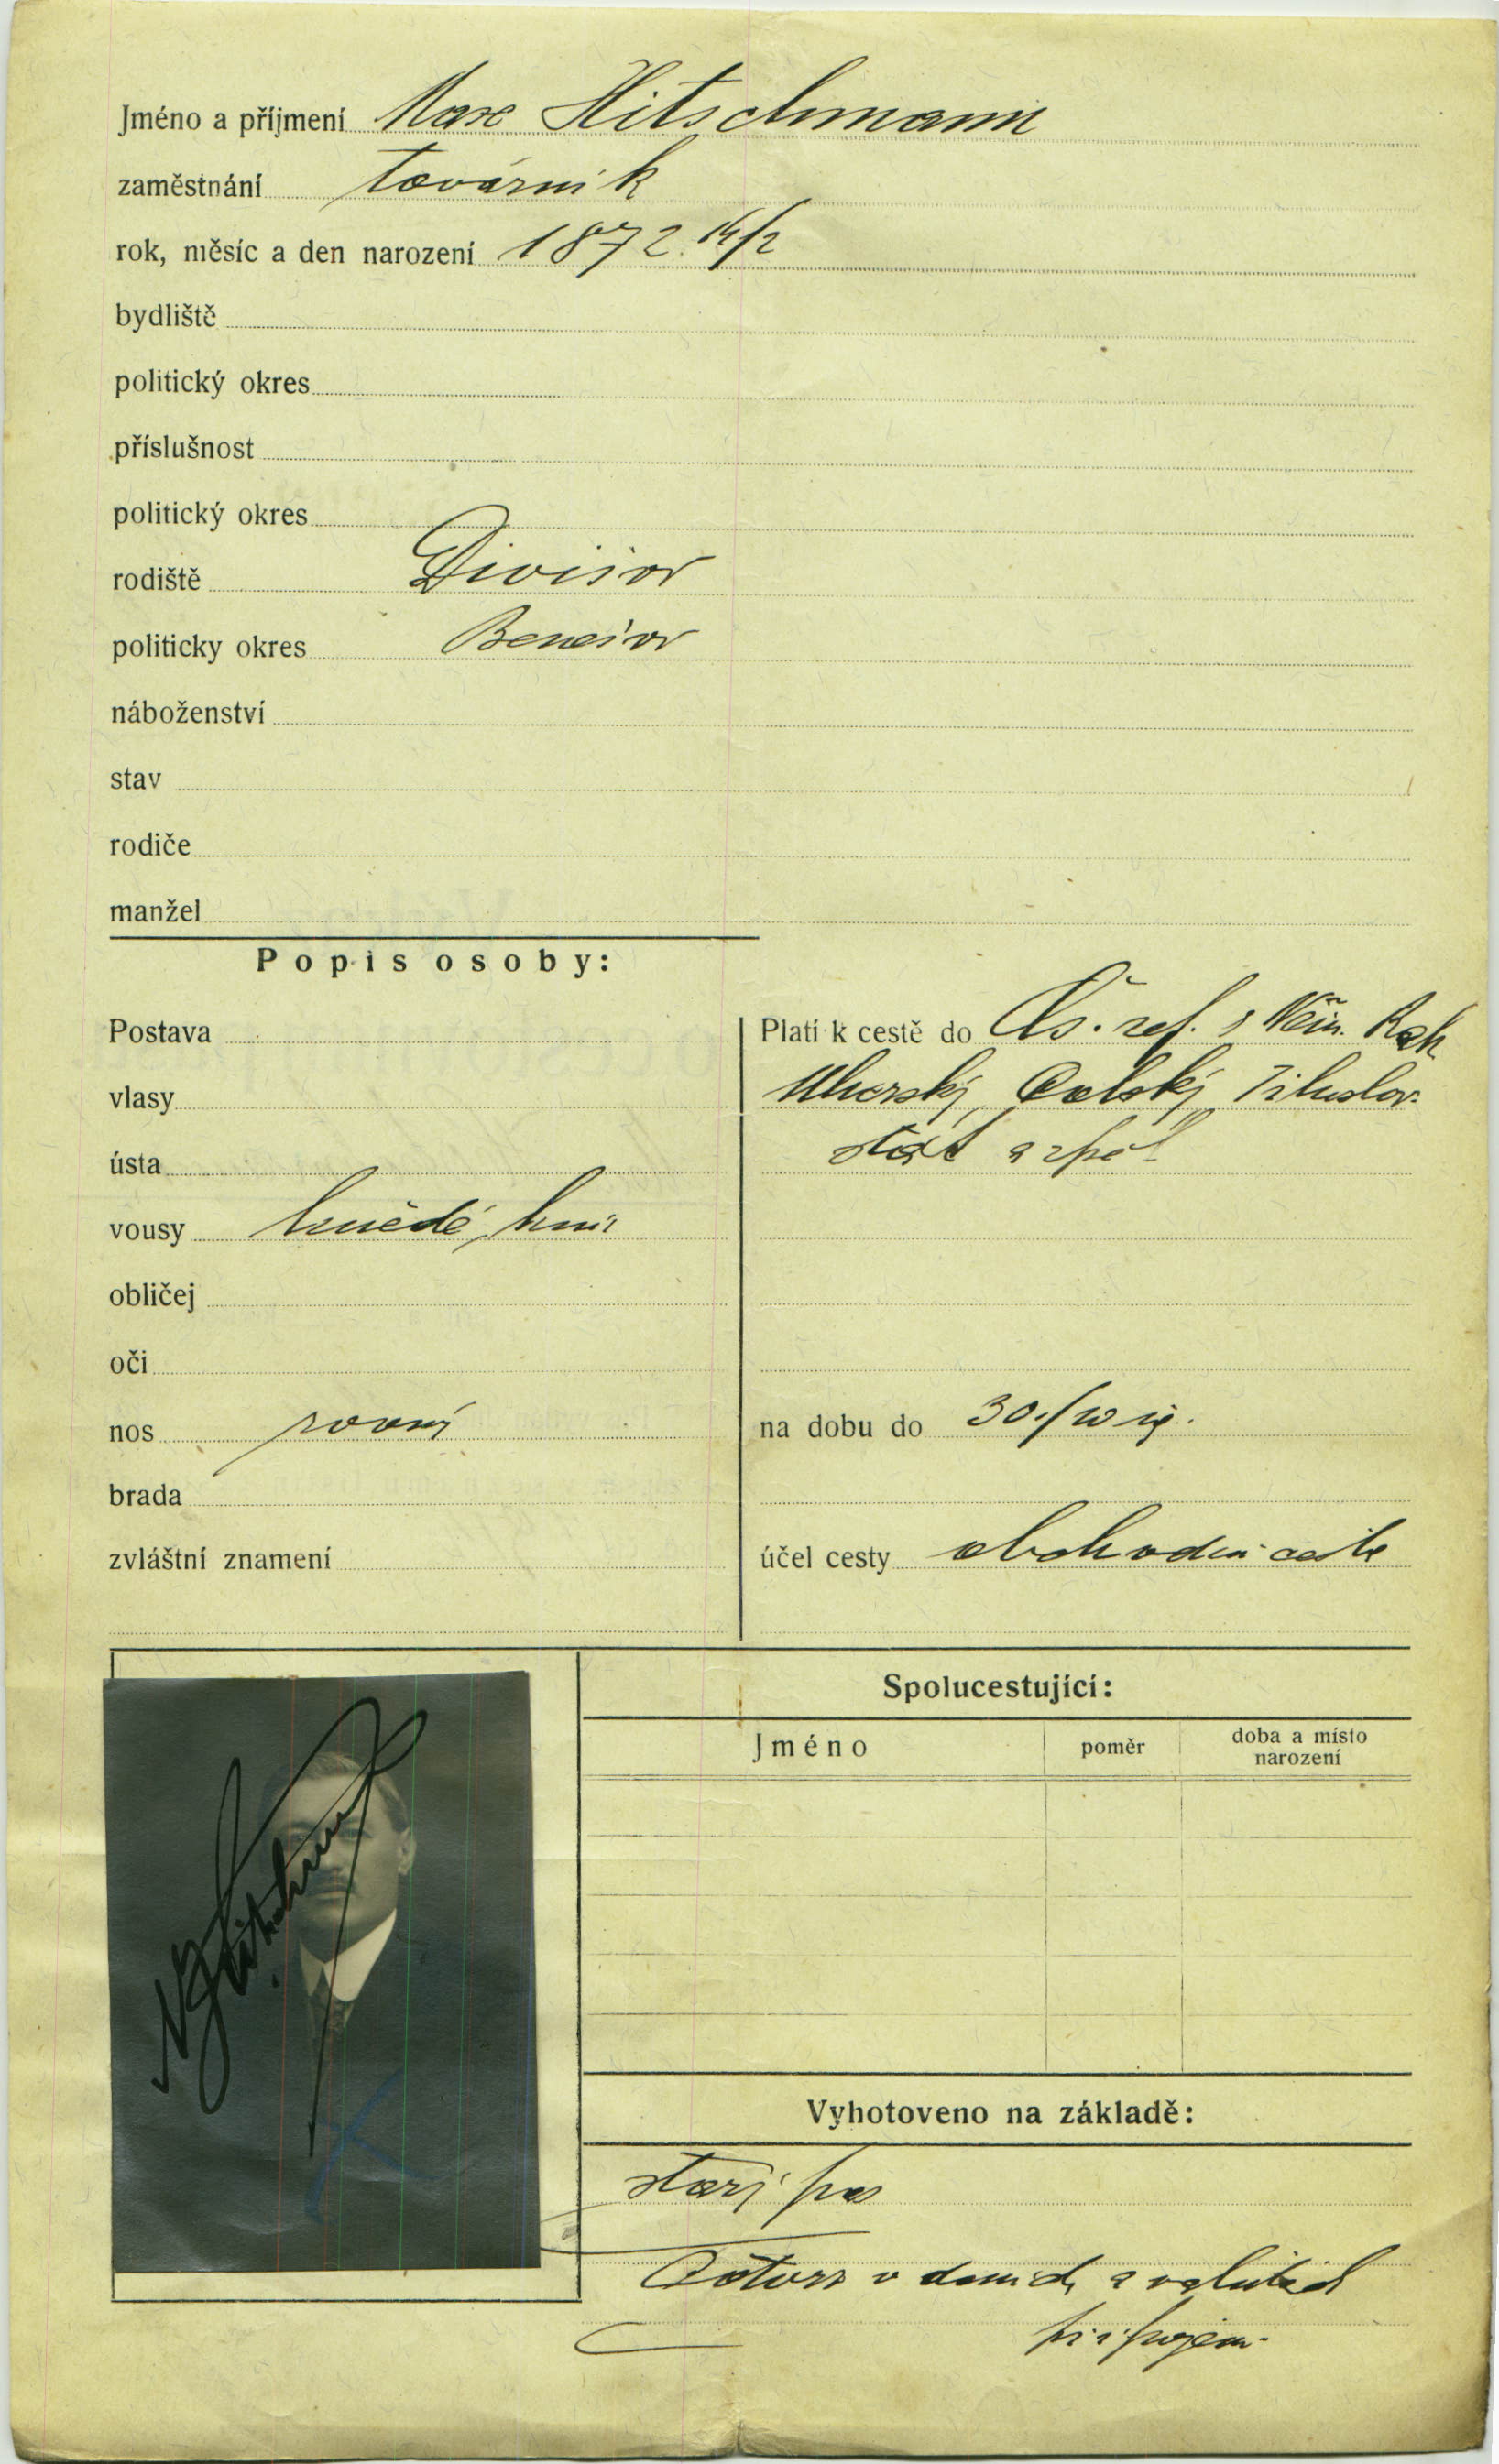 Jméno a příjmení Max Hitschmann
zaměstnání továrník
rok, měsíc a den narození 1872 14/2
bydliště
politický okres
příslušnost
politický okres
rodiště Divišov
politicky okres Benešov
náboženství
stav
rodiče
manžel
Popis osoby:
Postava
vlasy
ústa
vousy hnědé, knír
obličej
oči
nos rovný
brada
zvláštní znamení
Platí k cestě do Čs. rep. Něm. Rak
Uherský, Polský, Jihoslov.
stát a zpět
na dobu do 30./10
účel cesty obchodní cesta
Spolucestující:
Jméno poměr doba a místo
narození
Vyhotoveno na základě:
starý pas
v daních a
připojeno